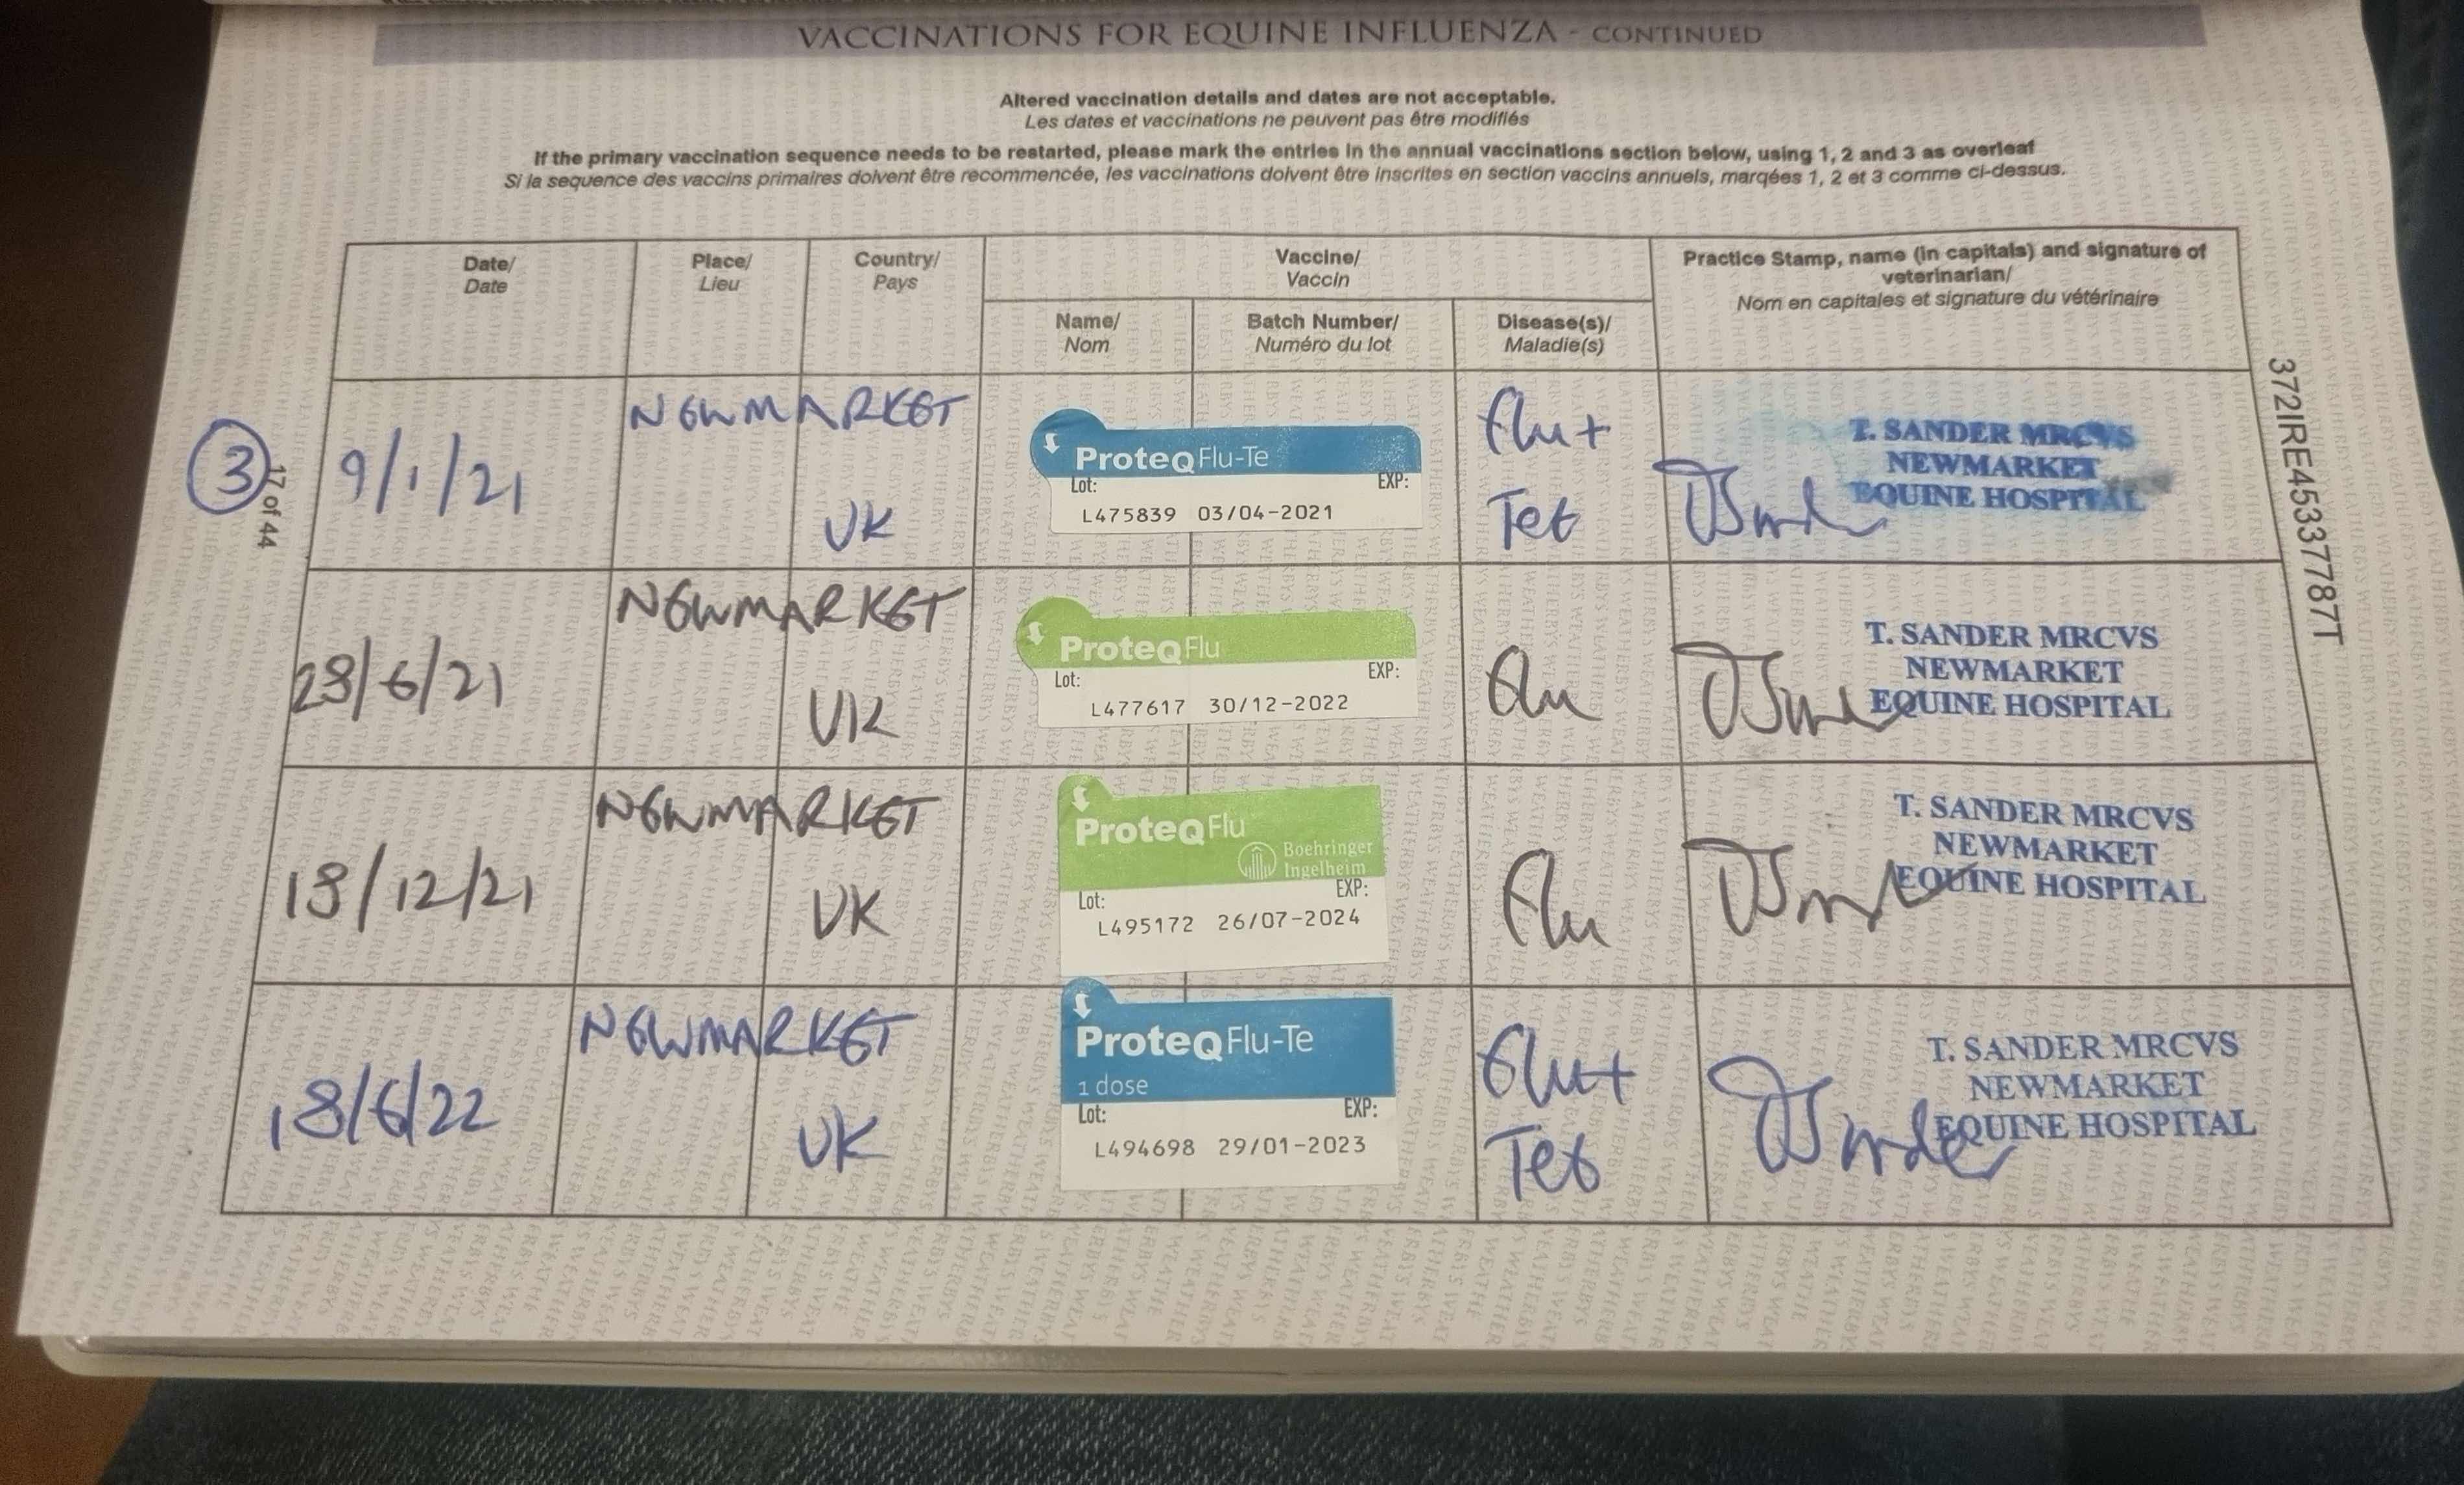 VACCINATIONS FOR EQUINE INFLUENZA - CONTINUED
Altered vaccination details and dates are not acceptable.
Les dates et vaccinations ne peuvent pas être modifiés
If the primary vaccination sequence needs to be restarted, please mark the entries in the annual vaccinations section below, using 1, 2 and 3 as overleaf
Si la sequence des vaccins primaires doivent être recommencée, les vaccinations doivent être inscrites en section vaccins annuels, marqées 1, 2 et 3 comme ci-dessus.
Date/
Date
Place/
Lieu
Country/
Pays
Vaccine/
Vaccin
Name/
Nom
Batch Number/
Numéro du lot
Disease(s)/
Maladie(s)
Practice Stamp, name (in capitals) and signature of
veterinarian/
Nom en capitales et signature du vétérinaire
3
17 of 44
9/1/21
NEWMARKET
UK
ProteqFlu-Te
Lot: EXP:
L475839 03/04-2021
Flu+
Tet
T. SANDER MRCVS
NEWMARKET
EQUINE HOSPITAL
28/6/21
NEWMARKET
UK
ProteqFlu
Lot: EXP:
L477617 30/12-2022
Flu
T. SANDER MRCVS
NEWMARKET
EQUINE HOSPITAL
18/12/21
NEWMARKET
UK
ProteqFlu
Boehringer
Ingelheim
Lot: EXP:
L495172 26/07-2024
Flu
T. SANDER MRCVS
NEWMARKET
EQUINE HOSPITAL
18/6/22
NEWMARKET
UK
ProteqFlu-Te
1 dose
Lot: EXP:
L494698 29/01-2023
Flu+
Tet
T. SANDER MRCVS
NEWMARKET
EQUINE HOSPITAL
372IRE45337787T